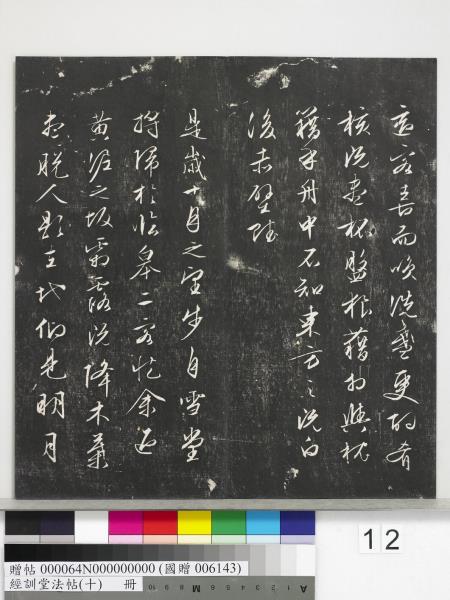 適客喜而笑洗盞更酌肴
核既盡杯盤狼藉相與枕
藉乎舟中不知東方之既白
後赤壁賦
是歲十月之望步自雪堂
將歸於臨皋二客從余過
黃泥之坂霜露既降木葉
盡脫人影在地仰見明月
12
贈帖 000064N000000000 (國贈 006143)
經訓堂法帖(十) 冊